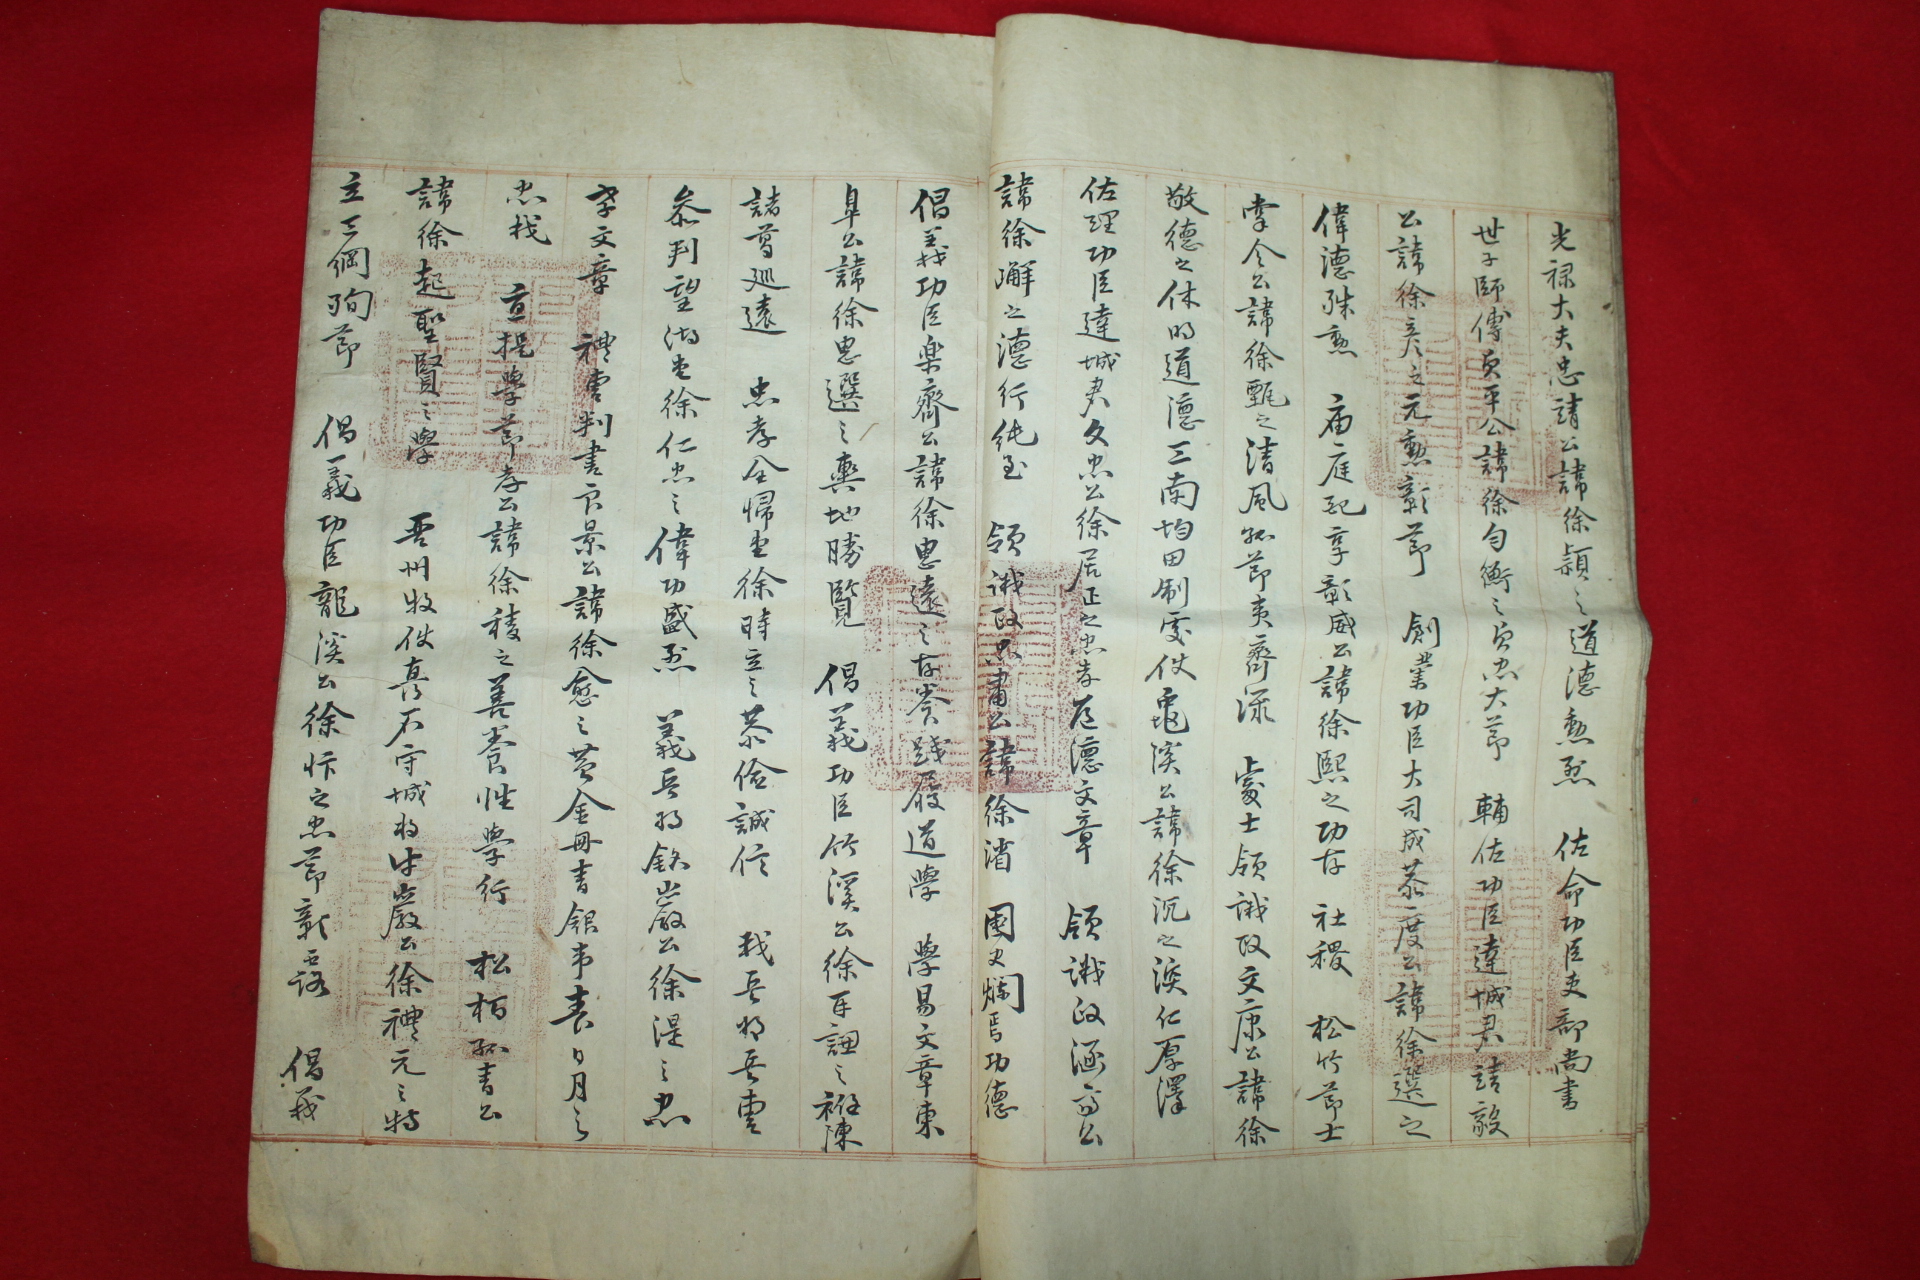 光祿大夫忠靖公諱徐穎之道德勲烈 佐命功臣吏部尙書
世子師傅貞平公諱徐勻衡之貞忠大節 輔佐功臣達城君靖毅
公諱徐彦之元勲彰節 創業功臣大司成恭度公諱徐選之
偉德殊勲 庙庭配享彰威公諱徐熙之功存 社稷 松竹節士
掌令公諱徐甄之清風孤節夷齊深 處士領議政文康公諱徐
敬德之休明道德 三南均田制處使龜溪公諱徐沉之深仁厚澤
佐理功臣達城君文忠公徐居正之忠孝道德文章 領議政涵齋公
諱徐嶰之德行純至 領議政忠肅公諱徐渻 國史爛焉功德
倡義功臣樂齋公諱徐思遠之存養踐履道學 學易文章東
皐公諱徐思選之輿地勝覽 倡義功臣竹溪公徐再謙之
諸葛巡遠 忠孝全歸堂徐時立之恭儉誠信 義兵將兵曹
叅判望湖堂徐仁忠之偉功盛烈 義兵將銘巖公徐湜之忠
孝文章 禮曹判書良景公諱徐愈之藍金冊書銀帛表日月之
忠義 直提學節孝公諱徐稜之善養性學行 松栢孤靑公
諱徐起聖賢之學 晋州牧使喜石守城將守巖公徐禮元之特
立三綱殉節 倡義功臣龍溪公徐忭之忠節彰露 倡義